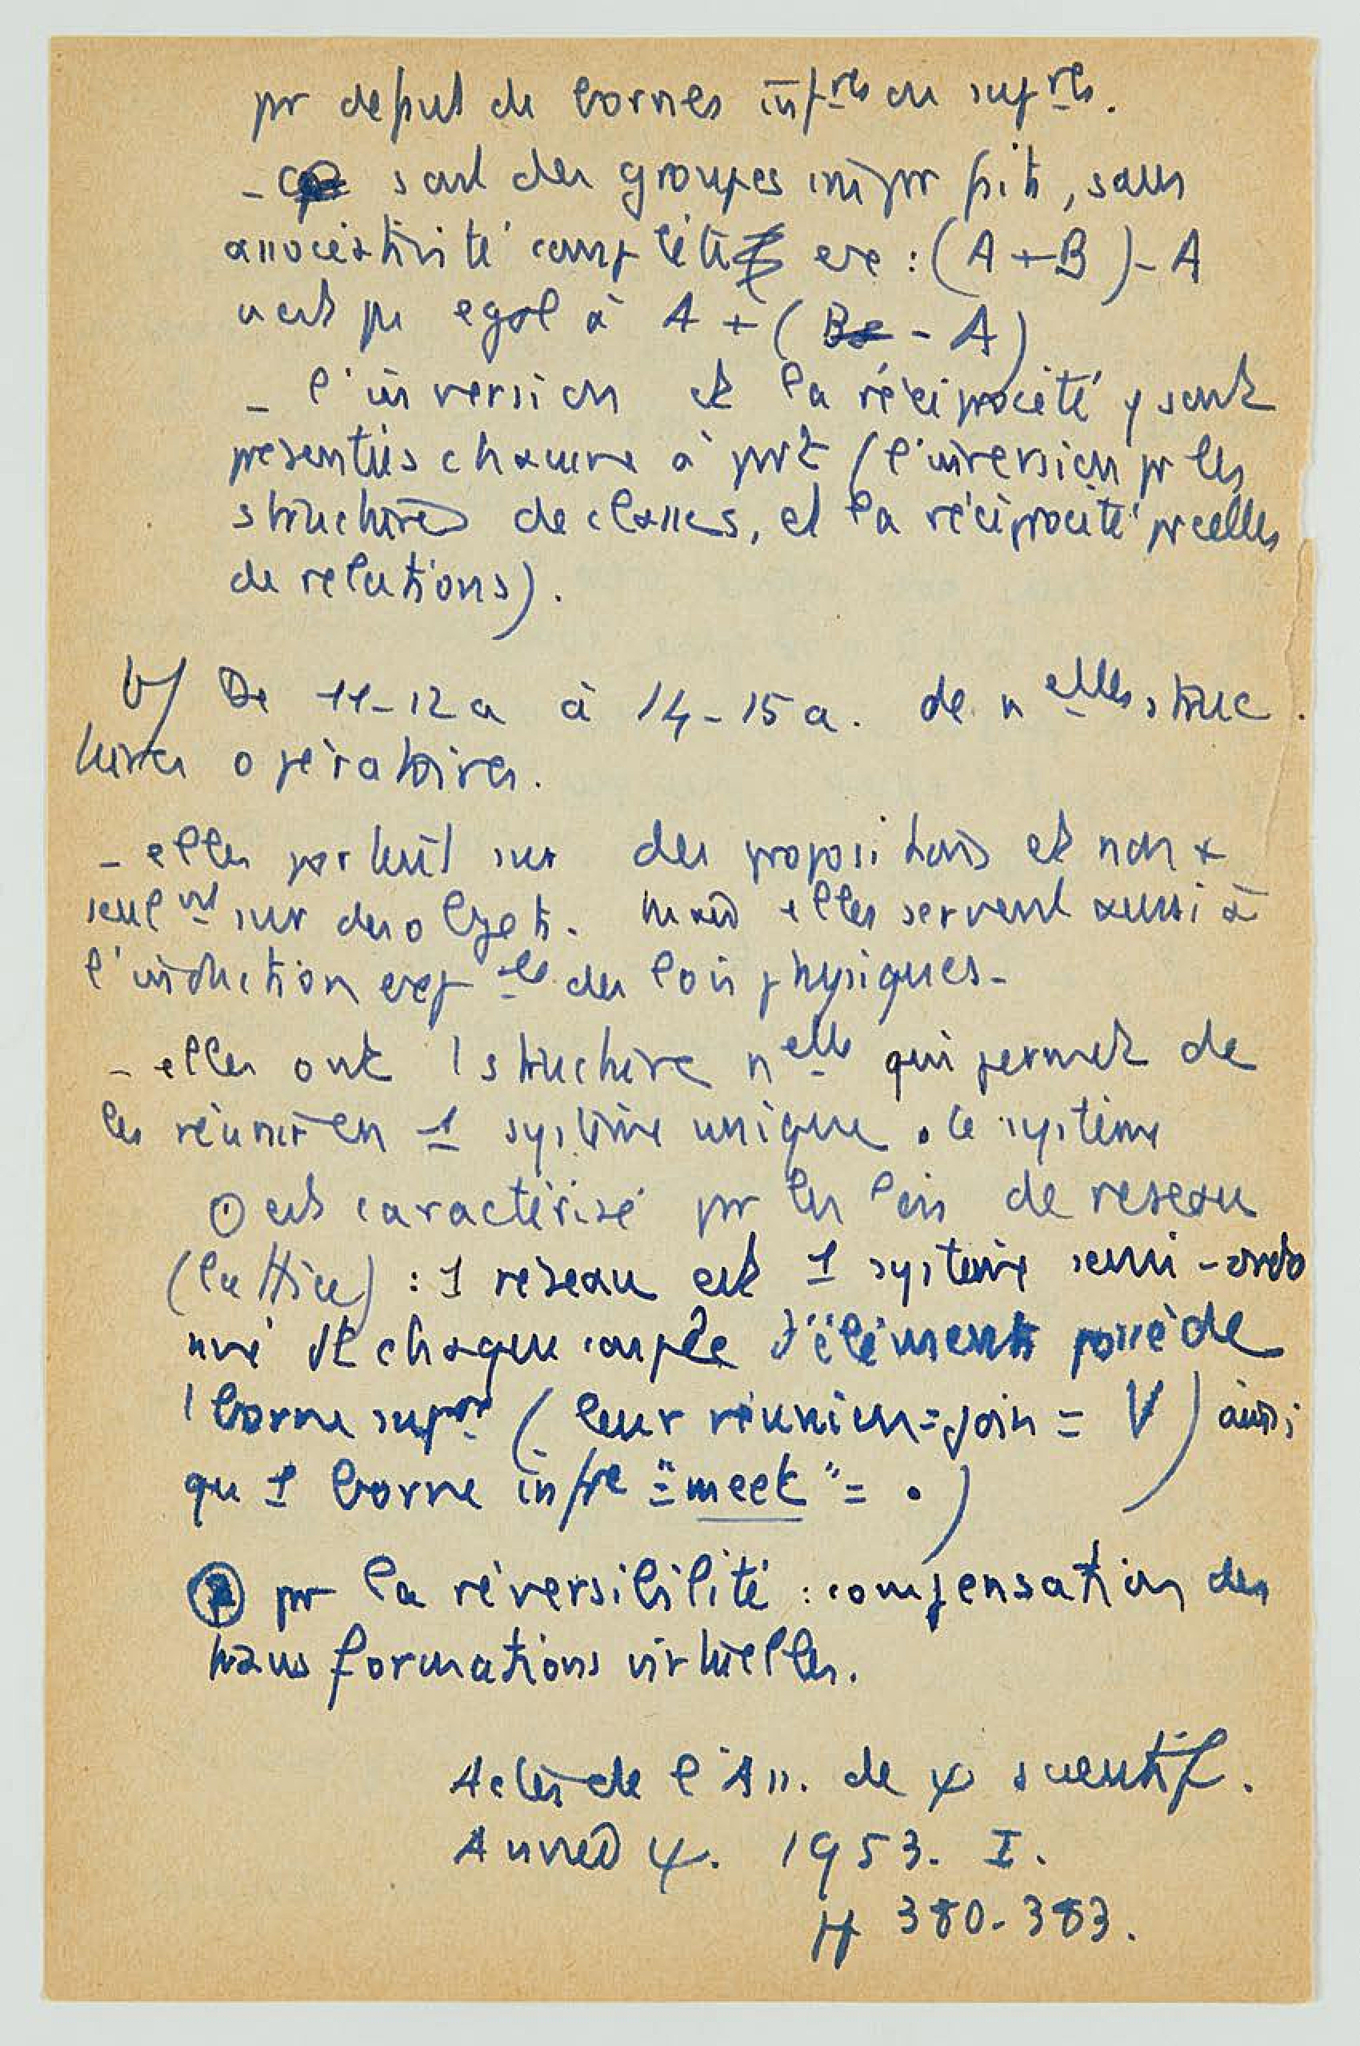 pr défaut de bornes infres ou supres.
- ce sont des groupes imparfaits, sans
associativité complète ex : (A + B) - A
n'est pas égal à A + (B - A)
- l'inversion et la réciprocité y sont
présentées chacune à part (l'inversion pr les
structures de classes, et la réciprocité pr celles
de relations).
b/ De 11-12 a à 14-15 a. de nelles struc
tures opératoires.
- elles portent sur des propositions et non +
seulmt sur des objets. mais elles servent aussi à
l'induction exple des lois physiques-
- elles ont 1 structure nelle qui permet de
les réunir en 1 système unique. Ce système
o est caractérisé par les lois de reseau
(lattice) : 1 réseau est 1 système semi-ordo
nné dt chaque couple d'éléments possède
1 borne supre (leur réunion = join = V) ainsi
qu 1 borne infre = "meet" = . )
pr la réversibilité : compensation des
transformations virtuelles.
Actes de l'Ass. de ψ scientif.
Année ψ. 1953. I.
pp 380-383.